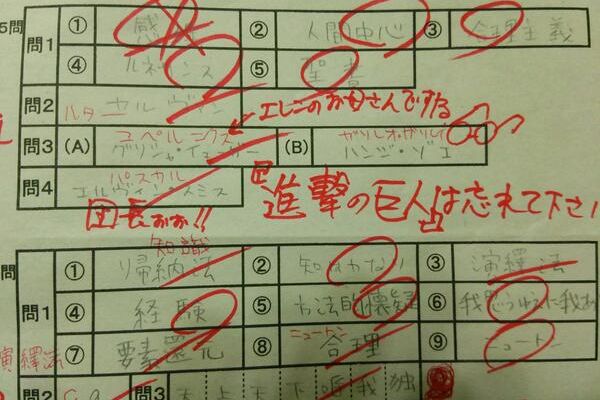 5問 問1 ① ② 人間中心 ③ 合理主義
④ ルネサンス ⑤ 聖書
問2 ルター カルヴァン ←エレンのお母さんです
コペルニクス ガリレオ・ガリレイ
問3 (A) グリシャ・イェーガー (B) ハンジ・ゾエ
パスカル
問4 エルヴィン・スミス
進撃の巨人は忘れて下さい
団長おお!!
知識
問 問1 ① 帰納法 ② 知は力なり ③ 演繹法
④ 経験 ⑤ 方法的懐疑 ⑥ 我思うゆえに我あ
ニュートン
演繹法 ⑦ 要素還元 ⑧ 合理 ⑨ ニュートン
問2 問3 天上天下唯我独